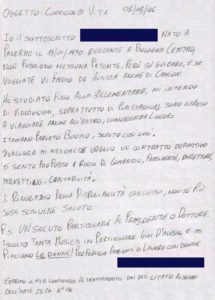 OGGETTO: CORRICOLO VITA
01/08/06
IO IL SOTTOSCRITTO NATO A
PALERMO IL 12/10/1970 RESIDENTE A BOLOGNA CENTRO,
NON POSSIEDO NESSUNA PATENTE, PERÒ SO GUIDARE, E SE
VOGLIATE VI FACCIO DA AUTISTA ANCHE DI CAMION.
HO STUDIATO FINO ALLA 5 ELEMENTARE, MI INTENDO
DI VIDEOGIOCHI, SOPRATTUTTO DI PLAYSTATION, SONO DISPOSTO
A VIAGGIARE ANCHE ALL'ESTERO, CONOSCENZA LINGUE
ITALIANO PARLATO BUONO, SCRITTO COSÌ COSÌ.
QUALORA MI ASSUMETE VOGLIO UN CONTRATTO DEFINITIVO
MI SENTO PREPOSTO A RUOLI DI COMANDO, PRESIDENTE, DIRETTORE,
MARKETTING, CONTABILITÀ.
VI RINGRAZIO DELLA DISPONIBILITÀ CONCESSO, NON SO PIÙ
COSA SCRIVERE SALUTO.
P.S. UN SALUTO PARTICOLARE AL PRESIDENTE O DOTTORE,
ASCOLTO TANTA MUSICA IN PARTICOLARE GIGI D'ALESSIO, E MI
PIACCIONO LE DONNE! PREFERISCO AMBIENTI DI LAVORO CON DONNE
ESPRIMO IL MIO CONSENSO AL TRATTAMENTO DEI DATI CITATO AI SENSI
DELL'ART.